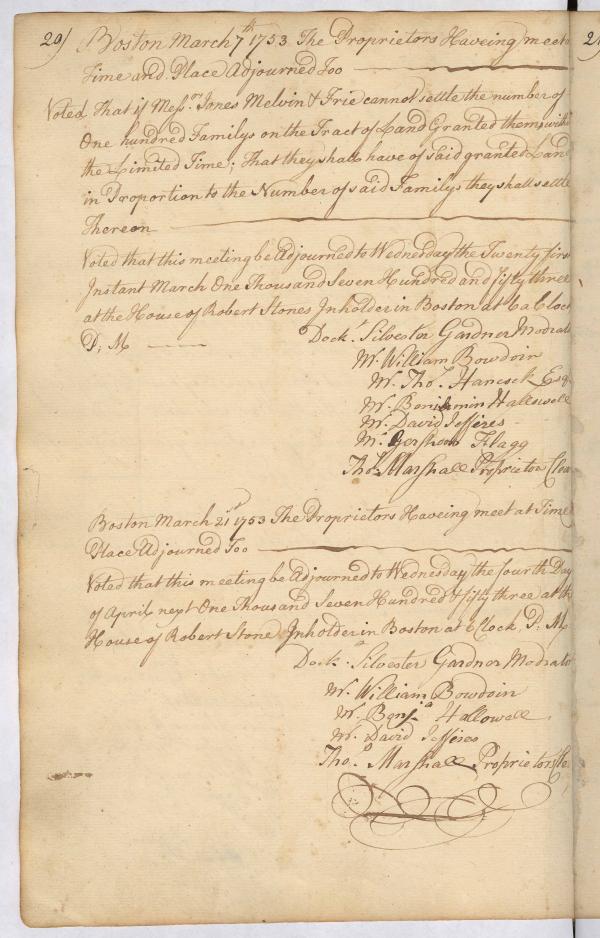 20) Boston March 7th 1753 The Proprietors Haveing meet
Time and Place Adjourned Too
Voted That if Messrs Jones Melvin & Frie cannot settle the number of
One hundred Familys on the Tract of Land Granted them, with
the Limited Time; That they shall have of said granted Land
in Proportion to the Number of said Familys they shall settle
Thereon
Voted that this meeting be Adjourned to Wednesday the Twenty first
Instant March One Thousand Seven Hundred and fifty three
at the House of Robert Stones Inholder in Boston at 6 a Clock
P; M
Dockr Silvester Gardner Modrat
Mr. William Bowdoin
Mr. Thos Hancock Esq
Mr. Benjamin Hallowell
Mr. David Jefferes
Mr. Gershom Flagg
Thos Marshall Proprietor Clea
Boston March 21st 1753 The Proprietors Haveing meet at Time
Place Adjourned Too
Voted that this meeting be Adjourned to Wednesday the fourth Day
of April next One Thousand Seven Hundred & fifty three at th
House of Robert Stone Inholder in Boston at 6 Clock, P; M
Dockr Silvester Gardner Modrat
Mr. William Bowdoin
Mr. Benja Hallowell
Mr. David Jefferes
Thos Marshall Proprietor Cle
2